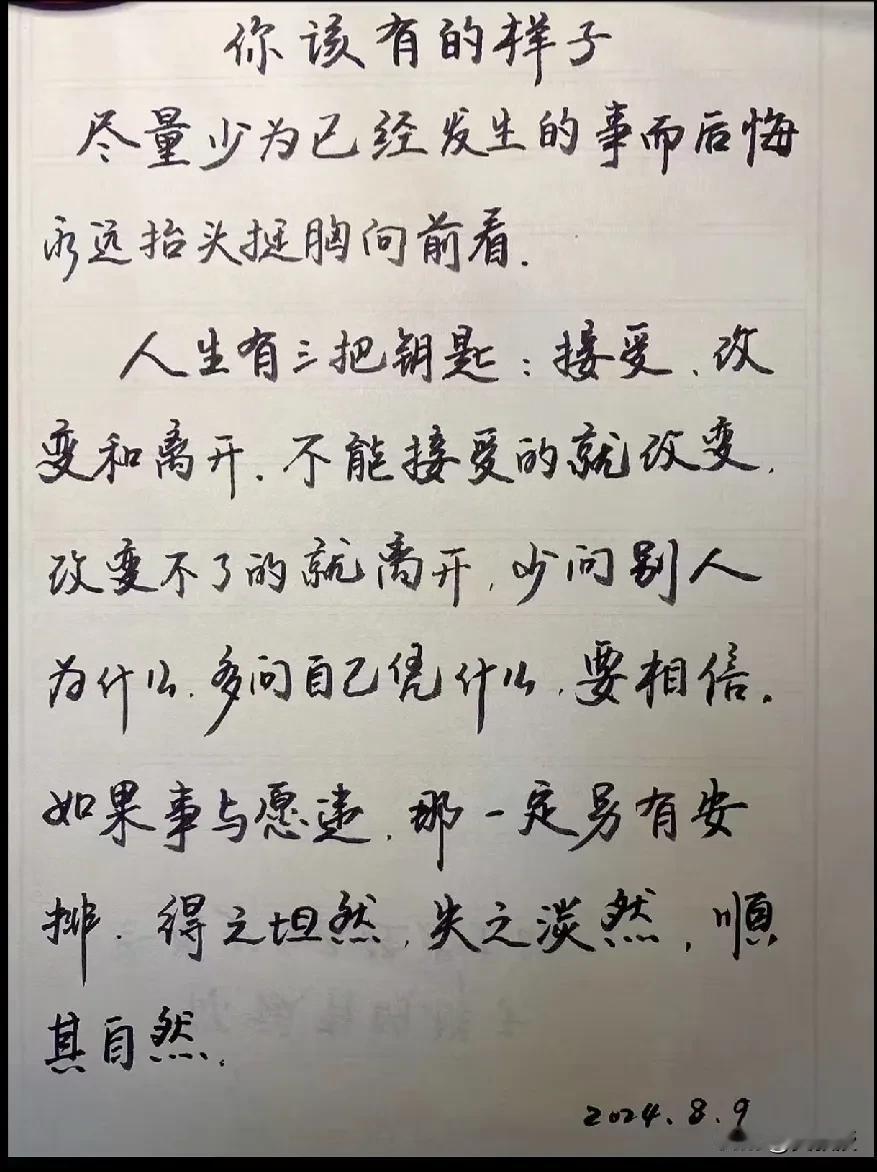 你该有的样子
尽量少为已经发生的事而后悔
永远抬头挺胸向前看.
人生有三把钥匙：接受、改
变和离开.不能接受的就改变,
改变不了的就离开,少问别人
为什么.多问自己凭什么,要相信.
如果事与愿违,那一定另有安
排.得之坦然,失之淡然,順
其自然.
2024.8.9